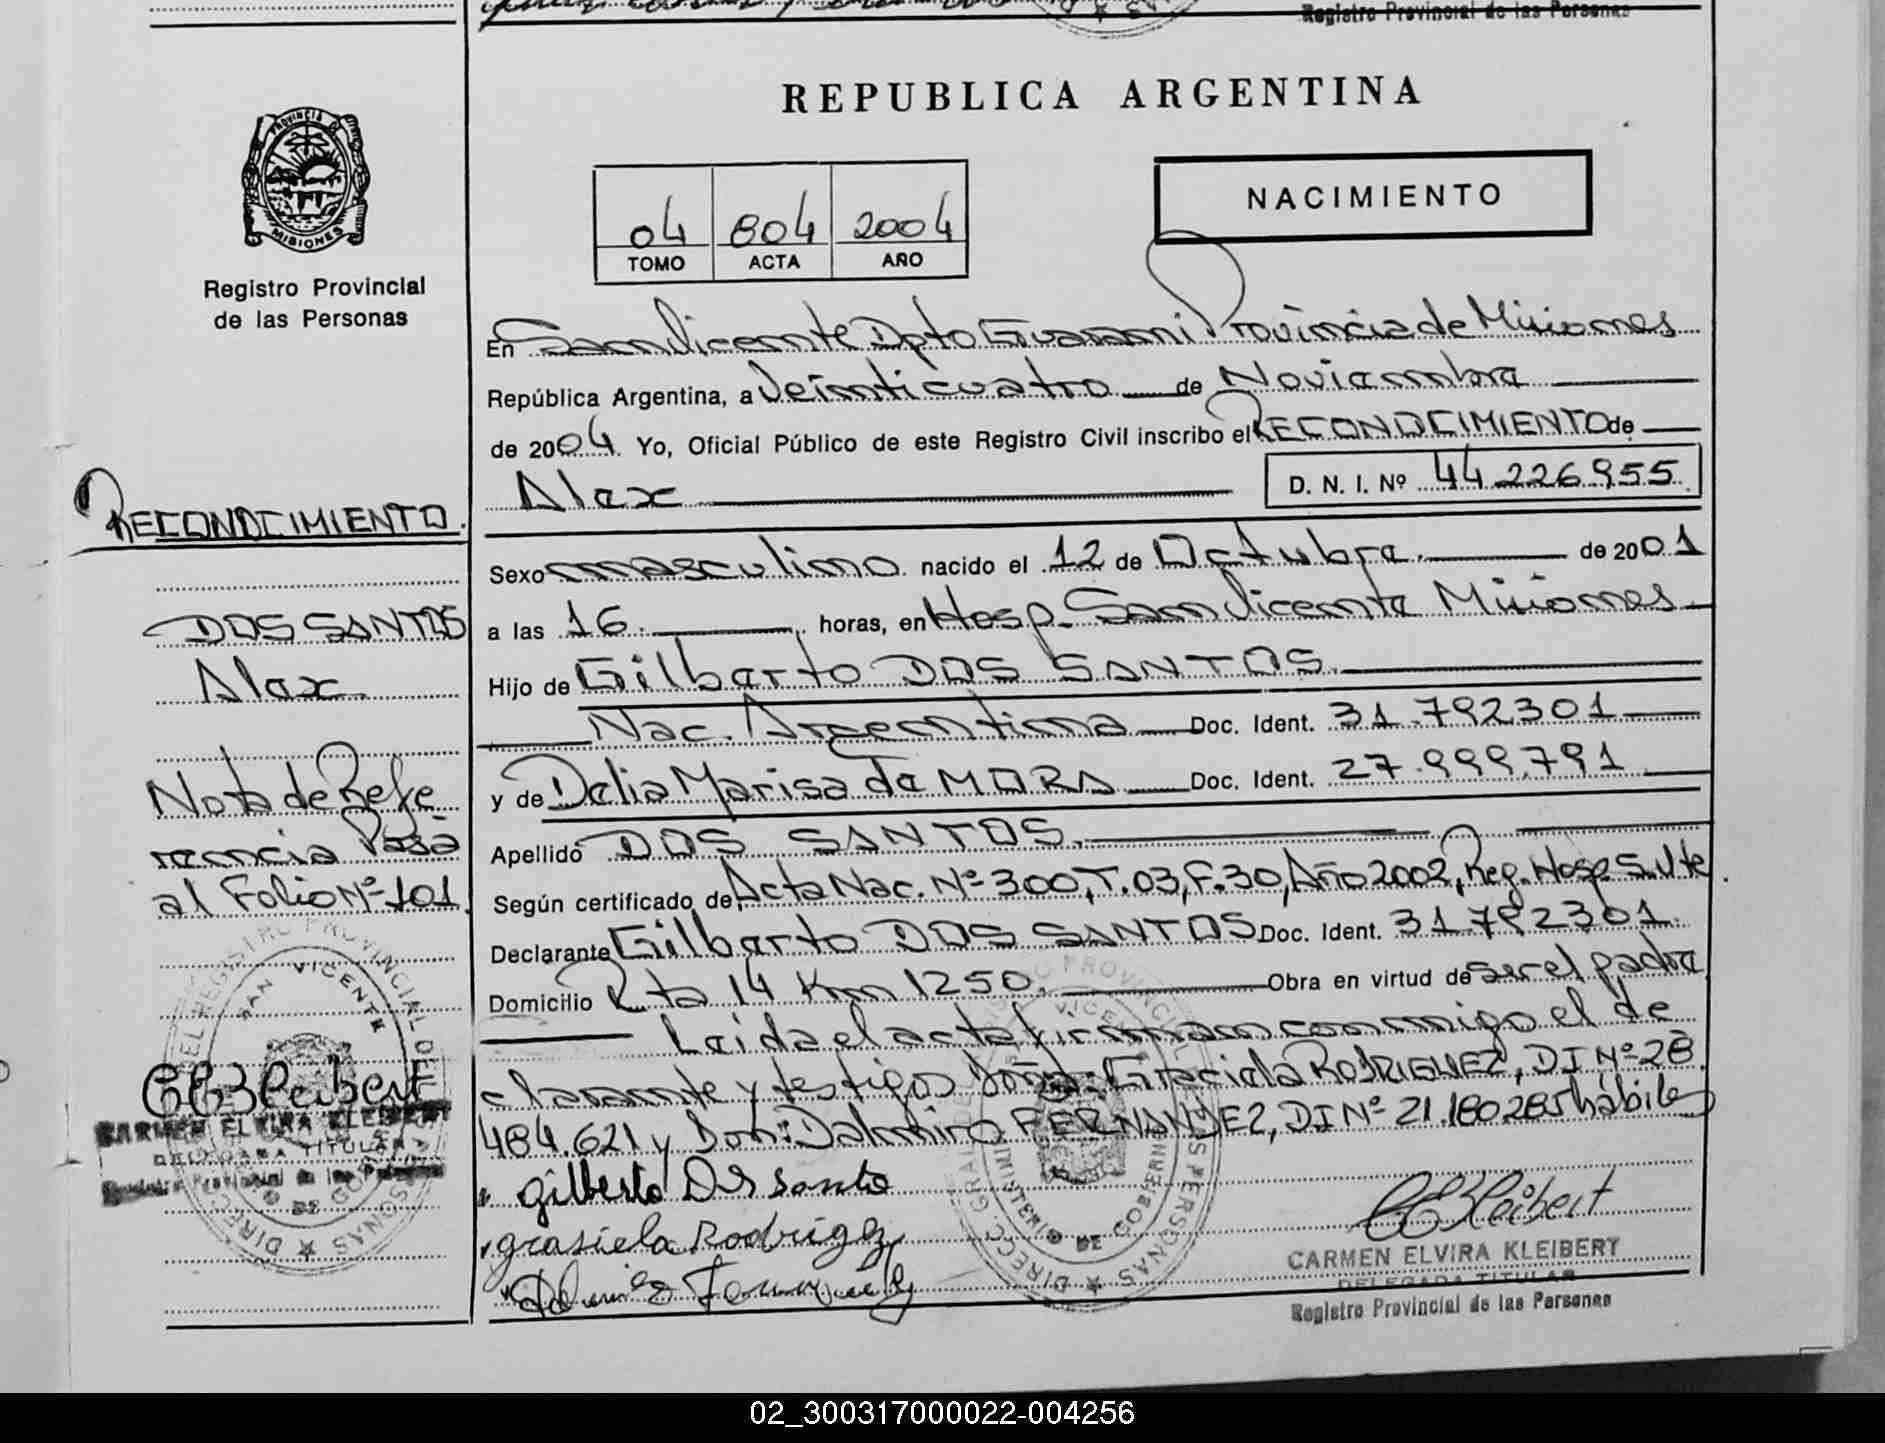 Registro Provincial de las Personas
REPUBLICA ARGENTINA
NACIMIENTO
04 804 2004
TOMO ACTA AÑO
PROVINCIA DE
MISIONES
Registro Provincial
de las Personas
En San Vicente Dpto Guarani Provincia de Misiones
República Argentina, a Veinticuatro de Noviembre
de 2004 Yo, Oficial Público de este Registro Civil inscribo el RECONOCIMIENTO de
Alex D. N. I. Nº 44.226.955
RECONOCIMIENTO.
Sexo masculino nacido el 12 de Octubre. de 2001
a las 16. horas, en Hosp. San Vicente Misiones
DOS SANTOS
Alex
Hijo de Gilberto DOS SANTOS.
Nac. Argentina Doc. Ident. 31.792301
y de Delia Marisa Da MORA Doc. Ident. 27.999.791
Nota de Refe
rencia Pasa
al Folio Nº 101.
Apellido DOS SANTOS.
Según certificado de Acta Nac. Nº 300, T. 03, F. 30, Año 2002, Reg. Hosp S. Vte.
Declarante Gilberto DOS SANTOS Doc. Ident. 31792301.
Domicilio Rta 14 Km 1250. Obra en virtud de ser el padre
Leida el acta firman conmigo el de
clarante y testigos Doña: Graciela RODRIGUEZ, DI Nº 28
484.621 y Don: Dalmiro FERNANDEZ, DI Nº 21.180285 hábiles
gilberto Dos santo
grasiela Rodrigez
CEKleibert
CARMEN ELVIRA KLEIBERT
DELEGADA TITULAR
Registro Provincial de las Personas
CEKleibert
CARMEN ELVIRA KLEIBERT
DELEGADA TITULAR
Registro Provincial de las Personas
SAN VICENTE
02_300317000022-004256